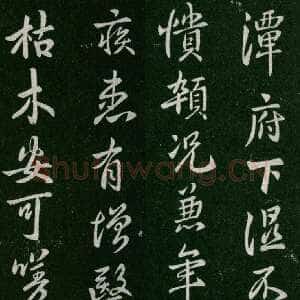 潭府下湿不
愦顿况兼年
疾患有增医
枯木安可嗟
shufawang.cn